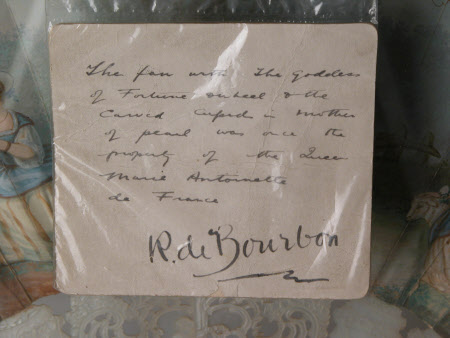 The fan with the goddess
of Fortune wheel & the
carved cupid in mother
of pearl was once the
property of the Queen
Marie Antoinette
de France
R. de Bourbon